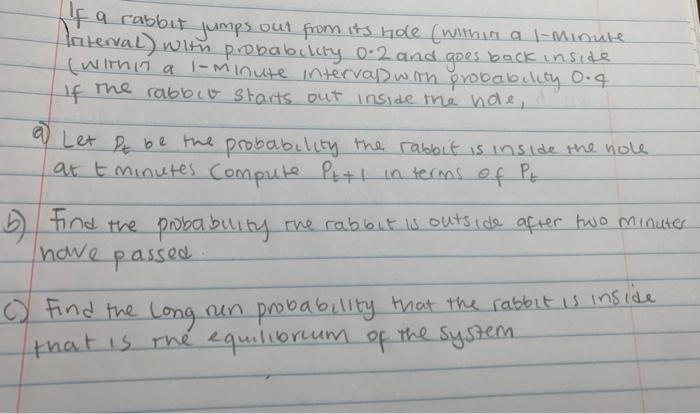 If a rabbit jumps out from its hole (within a 1-minute
interval) with probability 0.2 and goes back inside
(within a 1-minute interval) with probability 0.4
If the rabbit starts out inside the hole,
a) Let Pt be the probability the rabbit is inside the hole
at t minutes Compute Pt+1 in terms of Pt
b) Find the probability the rabbit is outside after two minutes
have passed.
c) Find the long run probability that the rabbit is inside
that is the equilibrium of the system